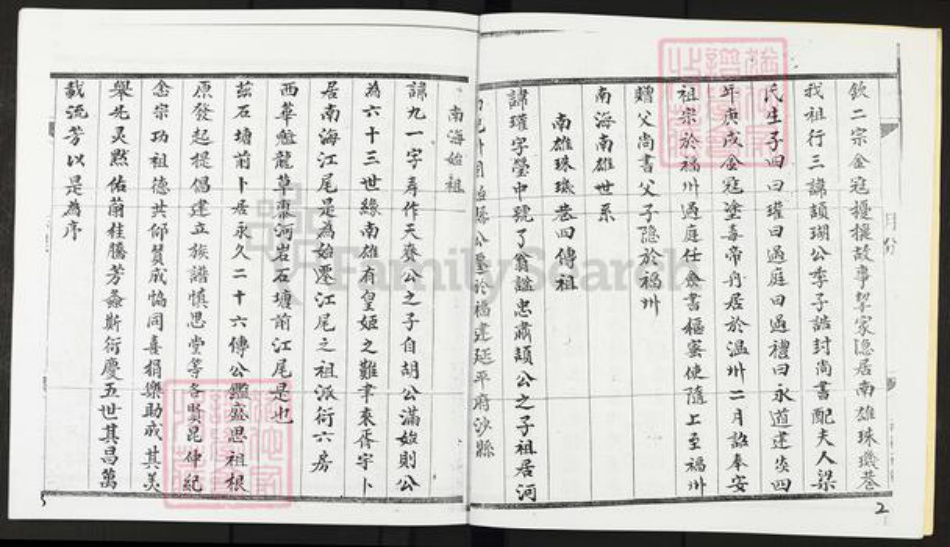 欽二宗金寇擾攘故事挈家隱居南雄珠璣巷
我祖行三諱顗瑚公季子誥封尚書配夫人梁
氏生子四曰瓘曰過庭曰過禮曰永道建炎四
年庚戌金寇塗毒帝舟居於溫州二月詔奉安
祖宗於福州過庭仕僉書樞密使隨上至福州
贈父尚書父子隱於福州
南海南雄世系
南雄珠璣巷四傳祖
諱瓘字瑩中號了翁諡忠肅顗公之子祖居河
公璽於福建延平府沙縣
南海始祖
諱九一字壽作天齊公之子自胡公滿始則公
為六十三世緣南雄有皇姬之難聿來胥宇卜
居南海江尾是為始遷江尾之祖派衍六房
西華魁龍草𡒄河岩石塘前江尾是也
茲石塘前卜居永久二十六傳公鑑盛思祖根
原發起提倡建立族譜慎思堂等各賢昆仲紀
念宗功祖德共仰贊成協同喜捐樂助成其美
舉先灵黙佑蘭桂騰芳螽斯衍慶五世其昌萬
載流芳以是為序
月份
2
3
FamilySearch